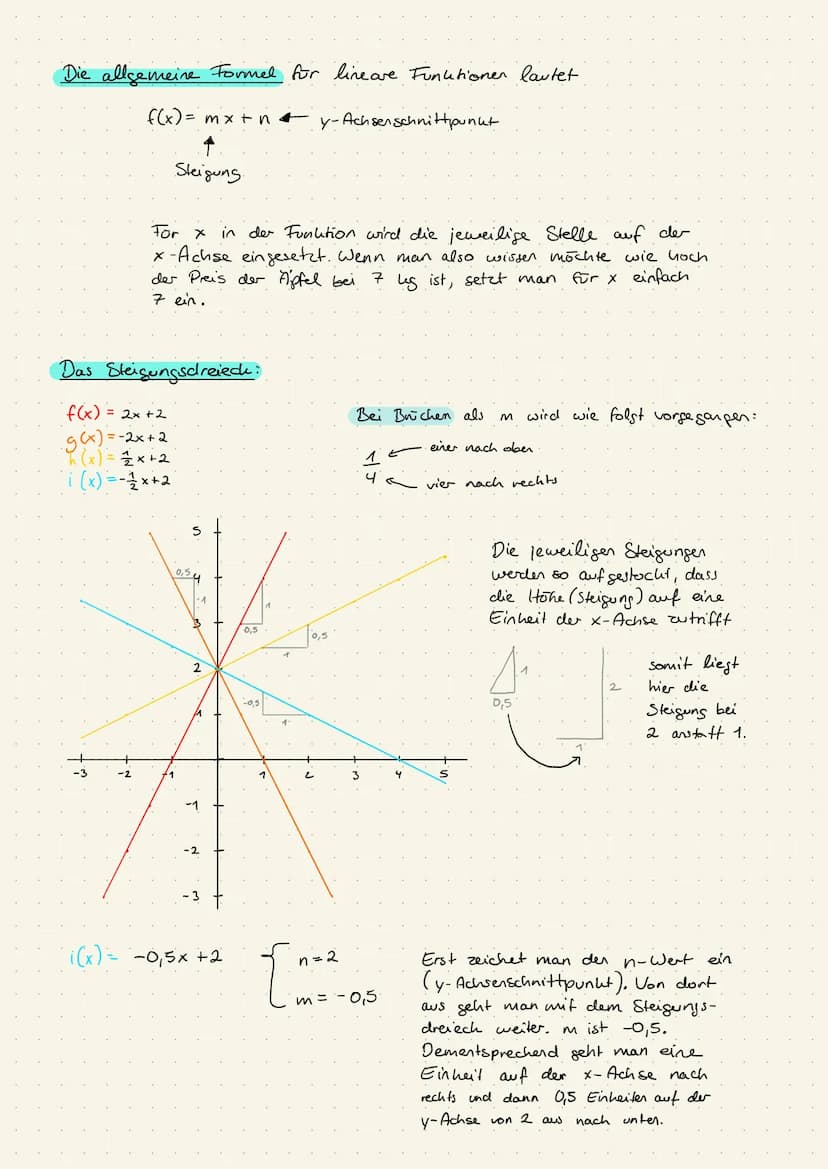 Die allgemeine Formel für lineare Funktionen lautet
f(x) = mx + n ← y-Achsenschnittpunkt
↑
Steigung
Für x in der Funktion wird die jeweilige Stelle auf der
x-Achse eingesetzt. Wenn man also wissen möchte wie hoch
der Preis der Äpfel bei 7 kg ist, setzt man für x einfach
7 ein.
Das Steigungsdreieck:
f(x) = 2x + 2
g(x) = -2x + 2
h(x) = 1/2 x + 2
i(x) = -1/2 x + 2
Bei Brüchen als m wird wie folgt vorgegangen:
1 ← einer nach oben
4 ← vier nach rechts
5
4
3
2
1
-1
-2
-3
-3 -2 -1 1 2 3 4 5
0,5
-1
0,5
1
0,5
1
-0,5
1
Die jeweiligen Steigungen
werden so aufgestockt, dass
die Höhe (Steigung) auf eine
Einheit der x-Achse zutrifft
1
0,5
2
1
somit liegt
hier die
Steigung bei
2 anstatt 1.
i(x) = -0,5x + 2
n = 2
m = -0,5
Erst zeichnet man den n-Wert ein
(y-Achsenschnittpunkt). Von dort
aus geht man mit dem Steigungs-
dreieck weiter. m ist -0,5.
Dementsprechend geht man eine
Einheit auf der x-Achse nach
rechts und dann 0,5 Einheiten auf der
y-Achse von 2 aus nach unten.